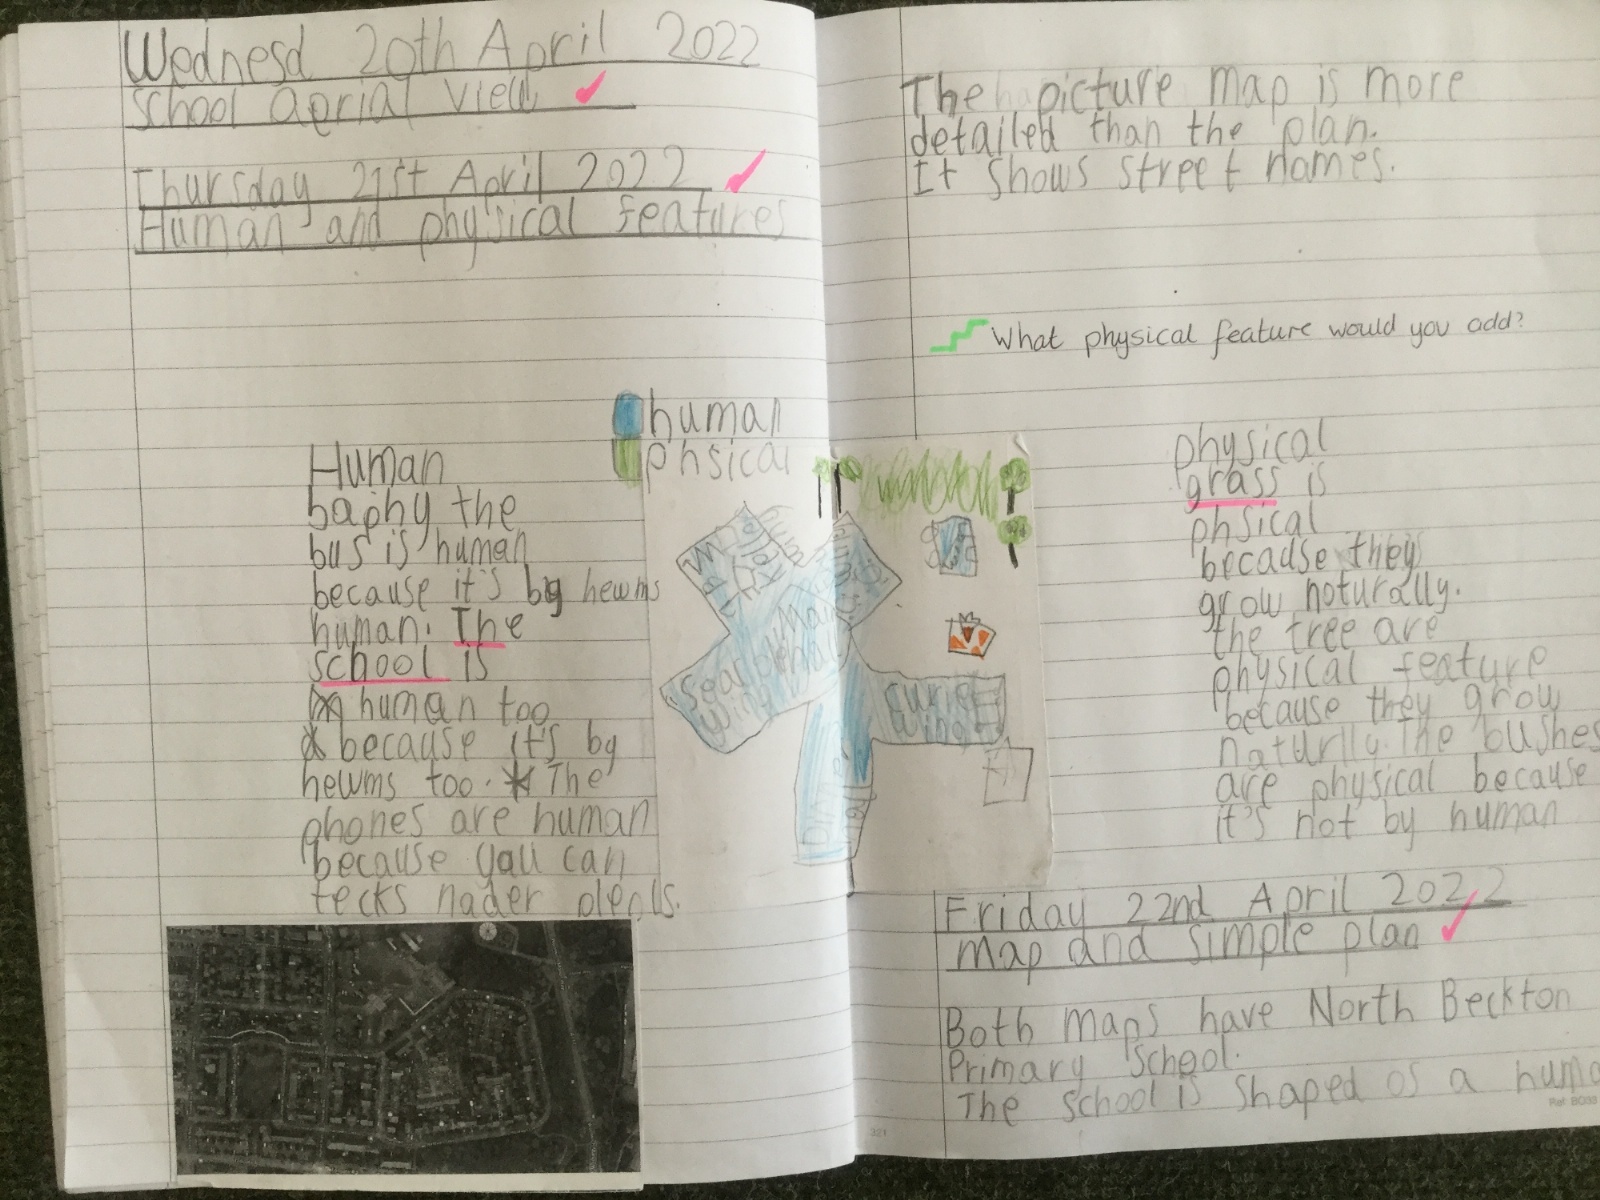 Wednesd 20th April 2022
School aerial view
Thursday 21st April 2022
Human and physical features
human
phsical
Human
baphy the
bus is human
because it's by hewms
human. The
school is
human too
because it's by
hewms too. The
phones are human
because you can
tecks nader
Searple
Wing
Main
hall
Dinner
hall
Curie
Wing
The picture map is more
detailed than the plan.
It shows street names.
What physical feature would you add?
physical
grass is
phsical
because they
grow noturally.
the tree are
physical feature
because they grow
naturlly. The bushes
are physical because
it's not by human
Friday 22nd April 2022
Map and simple plan
Both maps have North Beckton
Primary School.
The school is shaped as a huma
321